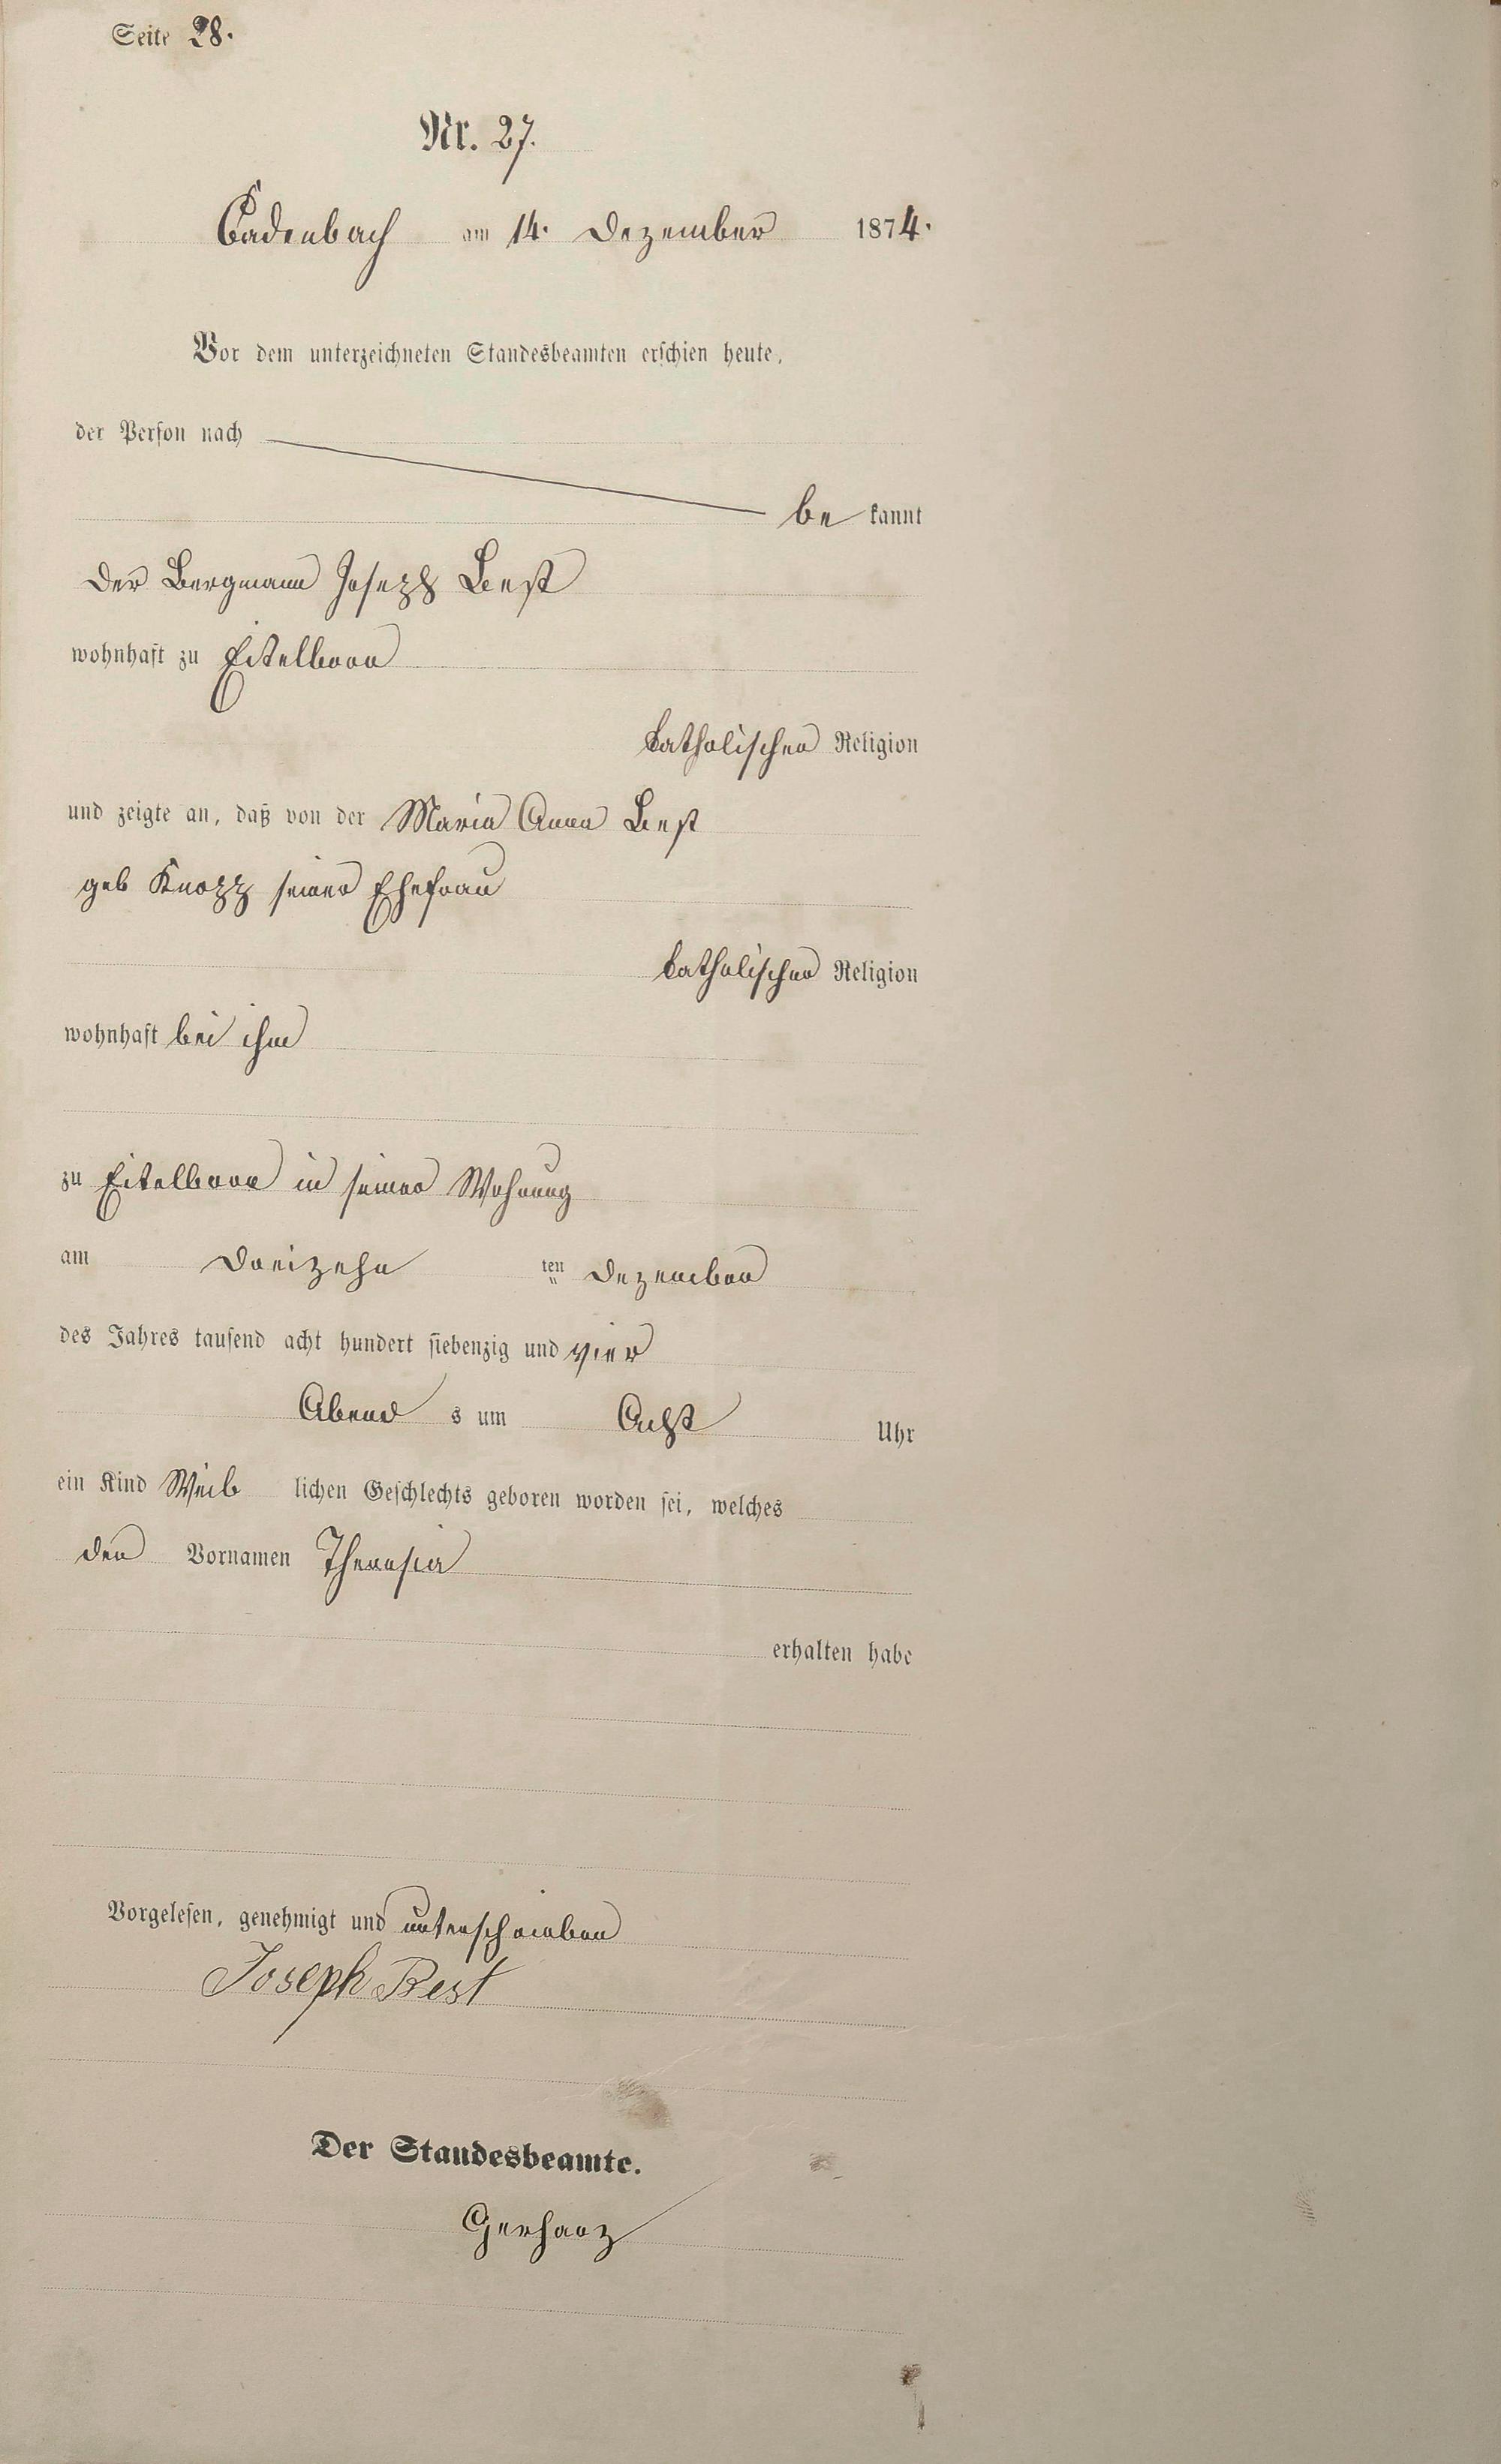 Seite 28.
Nr. 27.
Cadenbach am 14. Dezember 1874.
Vor dem unterzeichneten Standesbeamten erschien heute,
der Person nach
be kannt
der Bergmann Joseph Best
wohnhaft zu Eitelborn
katholischer Religion
und zeigte an, daß von der Maria Anna Best
geb Knopp seiner Ehefrau
katholischer Religion
wohnhaft bei ihm
zu Eitelborn in seiner Wohnung
am Dreizehn ten Dezember
des Jahres tausend acht hundert siebenzig und vier
Abend s um Acht Uhr
ein Kind Weib lichen Geschlechts geboren worden sei, welches
den Vornamen Theresia
erhalten habe
Vorgelesen, genehmigt und unterschrieben
Joseph Best
Der Standesbeamte.
Gerharz